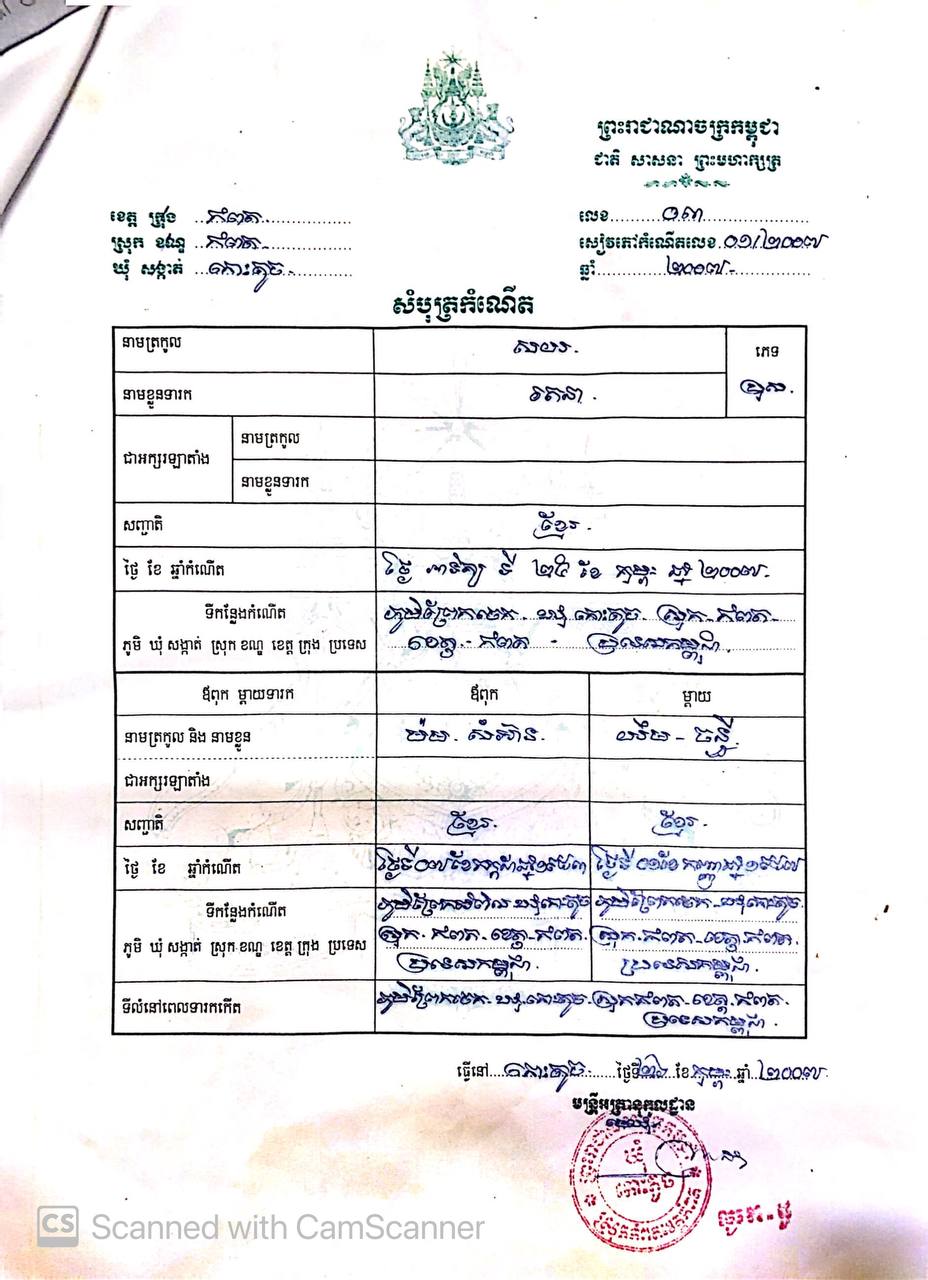 ព្រះរាជាណាចក្រកម្ពុជា
ជាតិ សាសនា ព្រះមហាក្សត្រ
ខេត្ត ក្រុង កំពត
ស្រុក ខណ្ឌ កំពត
ឃុំ សង្កាត់ កោះតូច
លេខ ០៣
សៀវភៅកំណើតលេខ ០១/២០០៧
ឆ្នាំ ២០០៧
សំបុត្រកំណើត
នាមត្រកូល
ភេទ
ប្រុស
នាមខ្លួនទារក រតនា
ជាអក្សរឡាតាំង
នាមត្រកូល
នាមខ្លួនទារក
សញ្ជាតិ ខ្មែរ
ថ្ងៃ ខែ ឆ្នាំកំណើត ថ្ងៃ អាទិត្យ ទី ២៥ ខែ កុម្ភៈ ឆ្នាំ ២០០៧
ទីកន្លែងកំណើត
ភូមិ ឃុំ សង្កាត់ ស្រុក ខណ្ឌ ខេត្ត ក្រុង ប្រទេស
ឃុំ កោះតូច ស្រុក កំពត
ខេត្ត កំពត ប្រទេសកម្ពុជា
ឪពុក ម្តាយទារក ឪពុក ម្តាយ
នាមត្រកូល និង នាមខ្លួន
ជាអក្សរឡាតាំង
សញ្ជាតិ ខ្មែរ ខ្មែរ
ថ្ងៃ ខែ ឆ្នាំកំណើត
ទីកន្លែងកំណើត
ភូមិ ឃុំ សង្កាត់ ស្រុក ខណ្ឌ ខេត្ត ក្រុង ប្រទេស
ឃុំកោះតូច ឃុំកោះតូច
ស្រុក កំពត ខេត្ត កំពត ស្រុក កំពត ខេត្ត កំពត
ប្រទេសកម្ពុជា ប្រទេសកម្ពុជា
ទីលំនៅពេលទារកកើត ឃុំកោះតូច ស្រុកកំពត ខេត្ត កំពត
ប្រទេសកម្ពុជា
ធ្វើនៅ កោះតូច ថ្ងៃទី ខែ កុម្ភៈ ឆ្នាំ ២០០៧
មន្ត្រីអត្រានុកូលដ្ឋាន
ឃុំ
កោះតូច
CS Scanned with CamScanner